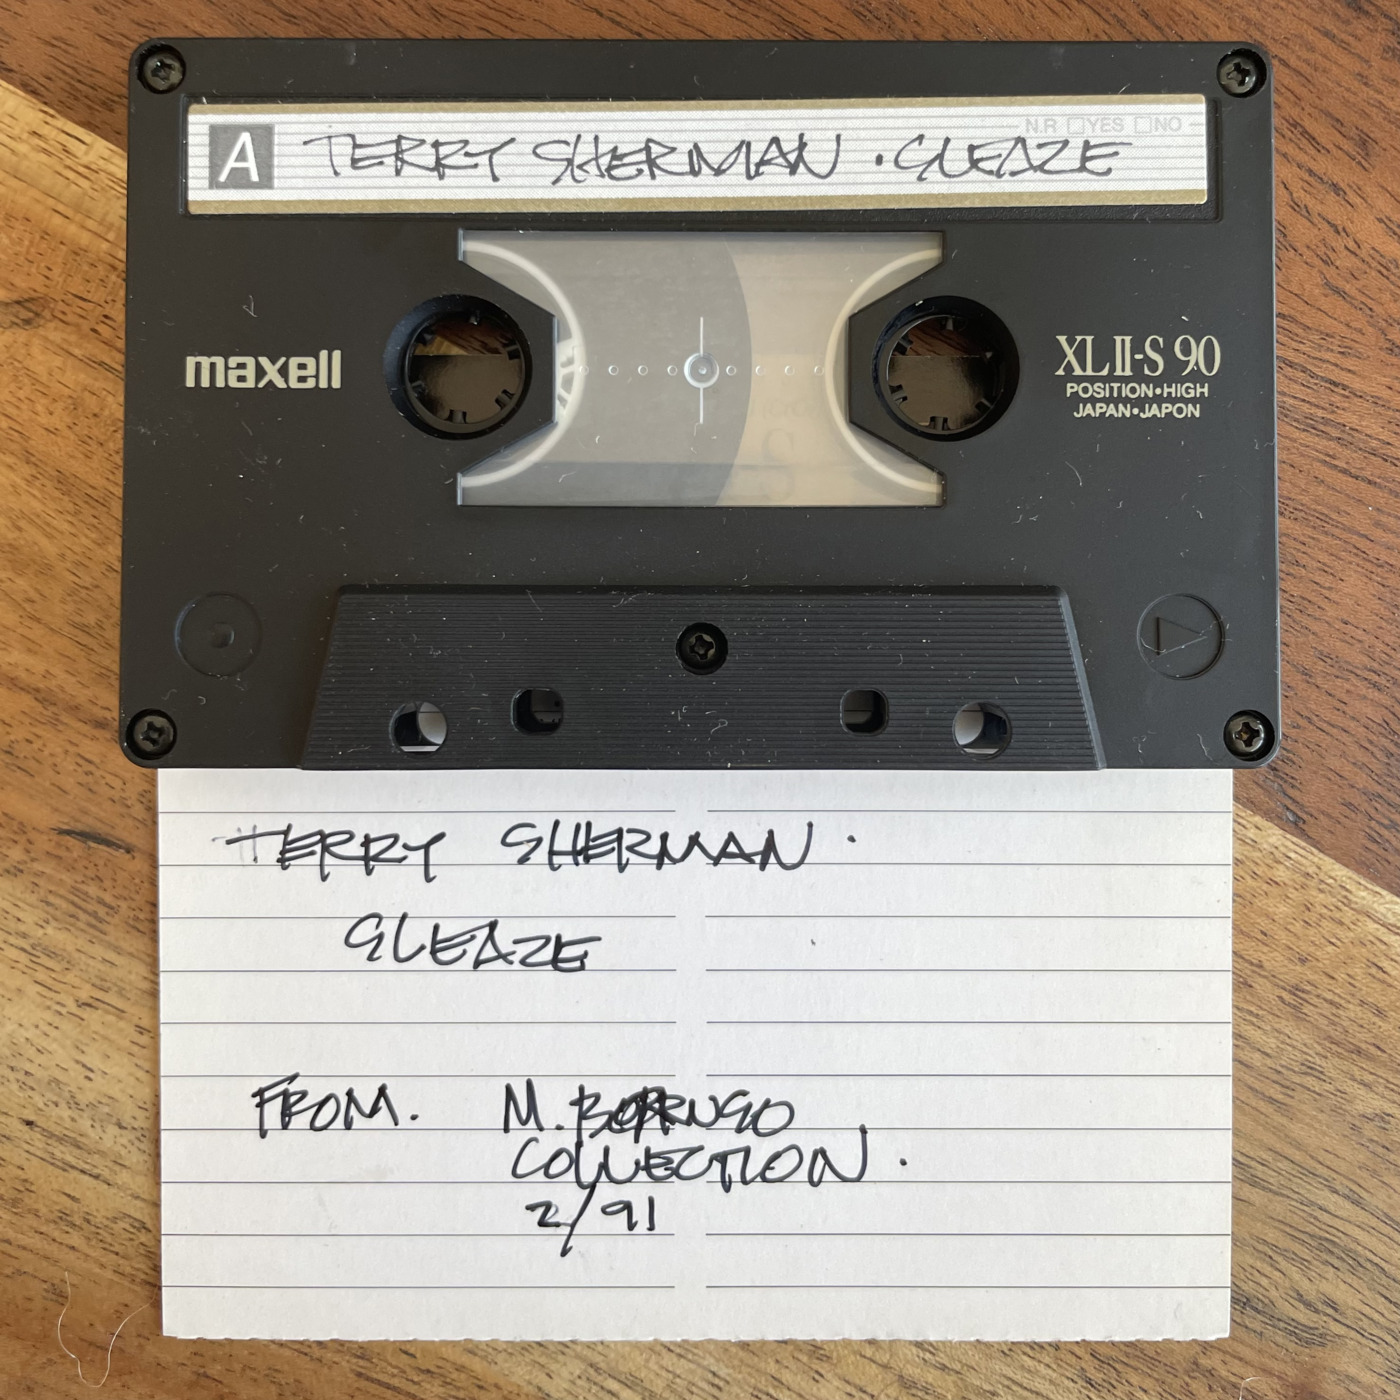 A TERRY SHERMAN · SLEAZE
N.R □YES □NO
maxell
XLII-S 90
POSITION•HIGH
JAPAN•JAPON
TERRY SHERMAN ·
SLEAZE
FROM. M.
COLLECTION.
2/91